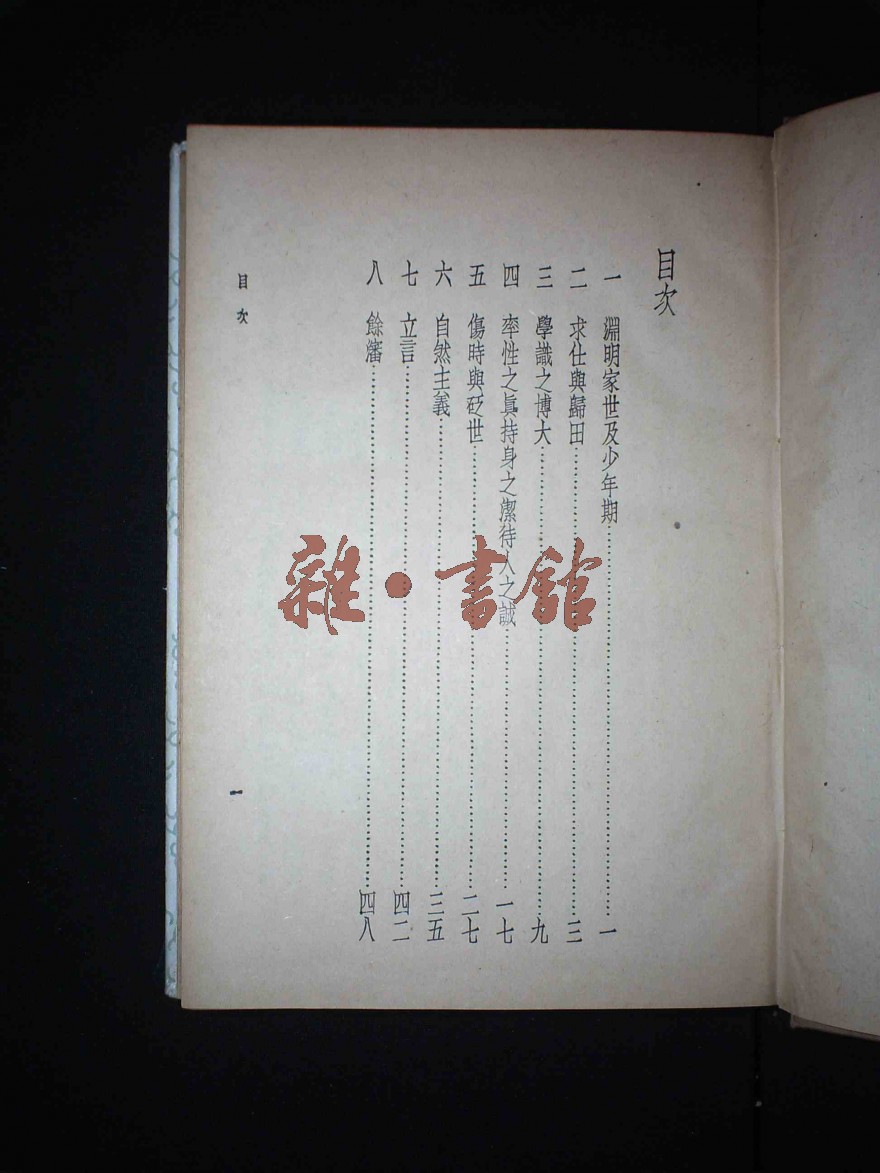 目次
一　淵明家世及少年期……………………一
二　求仕與歸田……………………三
三　學識之博大……………………九
四　率性之眞持身之潔待人之誠……………………一七
五　傷時與砭世……………………二七
六　自然主義……………………三五
七　立言……………………四二
八　餘瀋……………………四八
目次
一
雜·書館